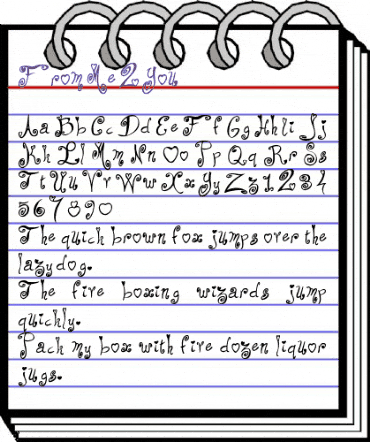 From Me 2 You
Aa Bb Cc Dd Ee Ff Gg Hh Ii Jj
Kk Ll Mm Nn Oo Pp Qq Rr Ss
Tt Uu Vv Ww Xx Yy Zz 1 2 3 4
5 6 7 8 9 0
The quick brown fox jumps over the
lazy dog.
The five boxing wizards jump
quickly.
Pack my box with five dozen liquor
jugs.